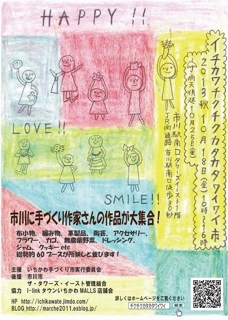 HAPPY !!
イチカワチクチクカタカタワイワイ市
2013秋 10月18日(金)10時〜16時
LOVE!!
SMILE!!
市川に手づくり作家さんの作品が大集合!
布小物、編み物、革製品、陶芸、アクセサリー、
フラワー、カゴ、無農薬野菜、ドレッシング、
ジャム、クッキー etc
総勢約60ブースが所狭しと並びます!
主催 いちかわ手づくり市実行委員会
後援 市川市
ザ・タワーズ・イースト管理組合
協力 I-link タウンいちかわ MALLS 店舗会
HP http://ichikawate.jimdo.com/
BLOG http://marche2011.exblog.jp/
詳しくはホームページをご覧ください
チクチクカタカタワイワイ
検索